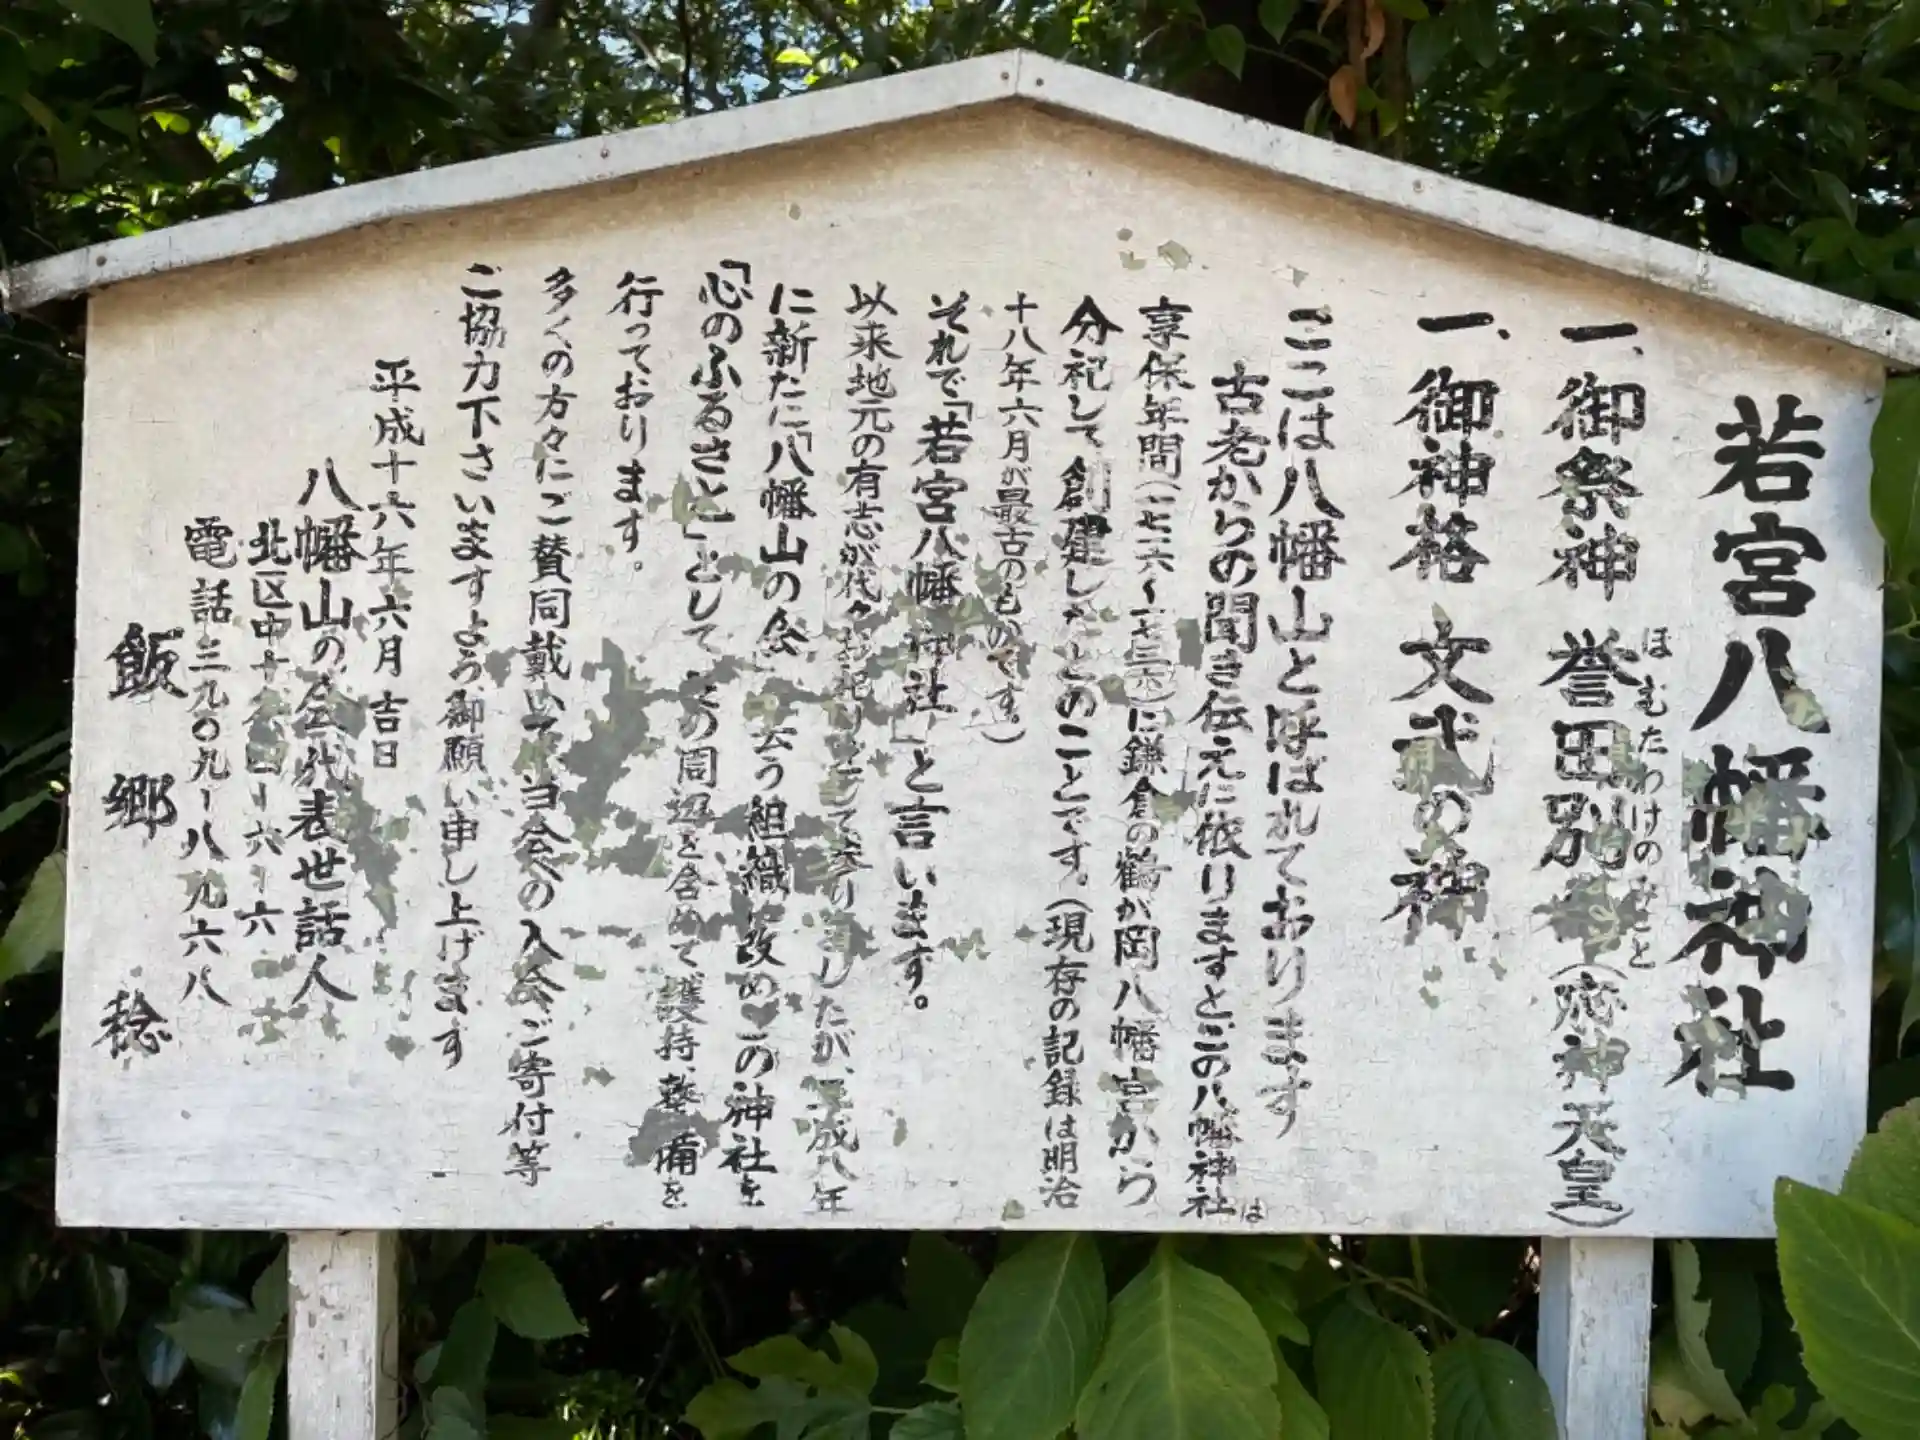 若宮八幡神社
一、御祭神 誉田別 (応神天皇)
ほむたわけのみこと
一、御神格 文武の神
ここは八幡山と呼ばれております
古老からの聞き伝えに依りますとこの八幡神社は
享保年間(七一六~一七三六)に鎌倉の鶴が岡八幡宮から
分祀して創建したとのことです。(現存の記録は明治
十八年六月が最古のものです。)
それで「若宮八幡神社」と言います。
以来地元の有志が代々お祀りをして参りましたが、平成八年
に新たに「八幡山の会」と云う組織に改めこの神社を
「心のふるさと」として その周辺を含めて護持、整備を
行っております。
多くの方々にご賛同戴いて当会への入会、ご寄付等
ご協力下さいますよう御願い申し上げます
平成十六年六月吉日
八幡山の会代表世話人
北区中十 ー六ー六
電話三九〇九ー八九六八
飯郷 稔